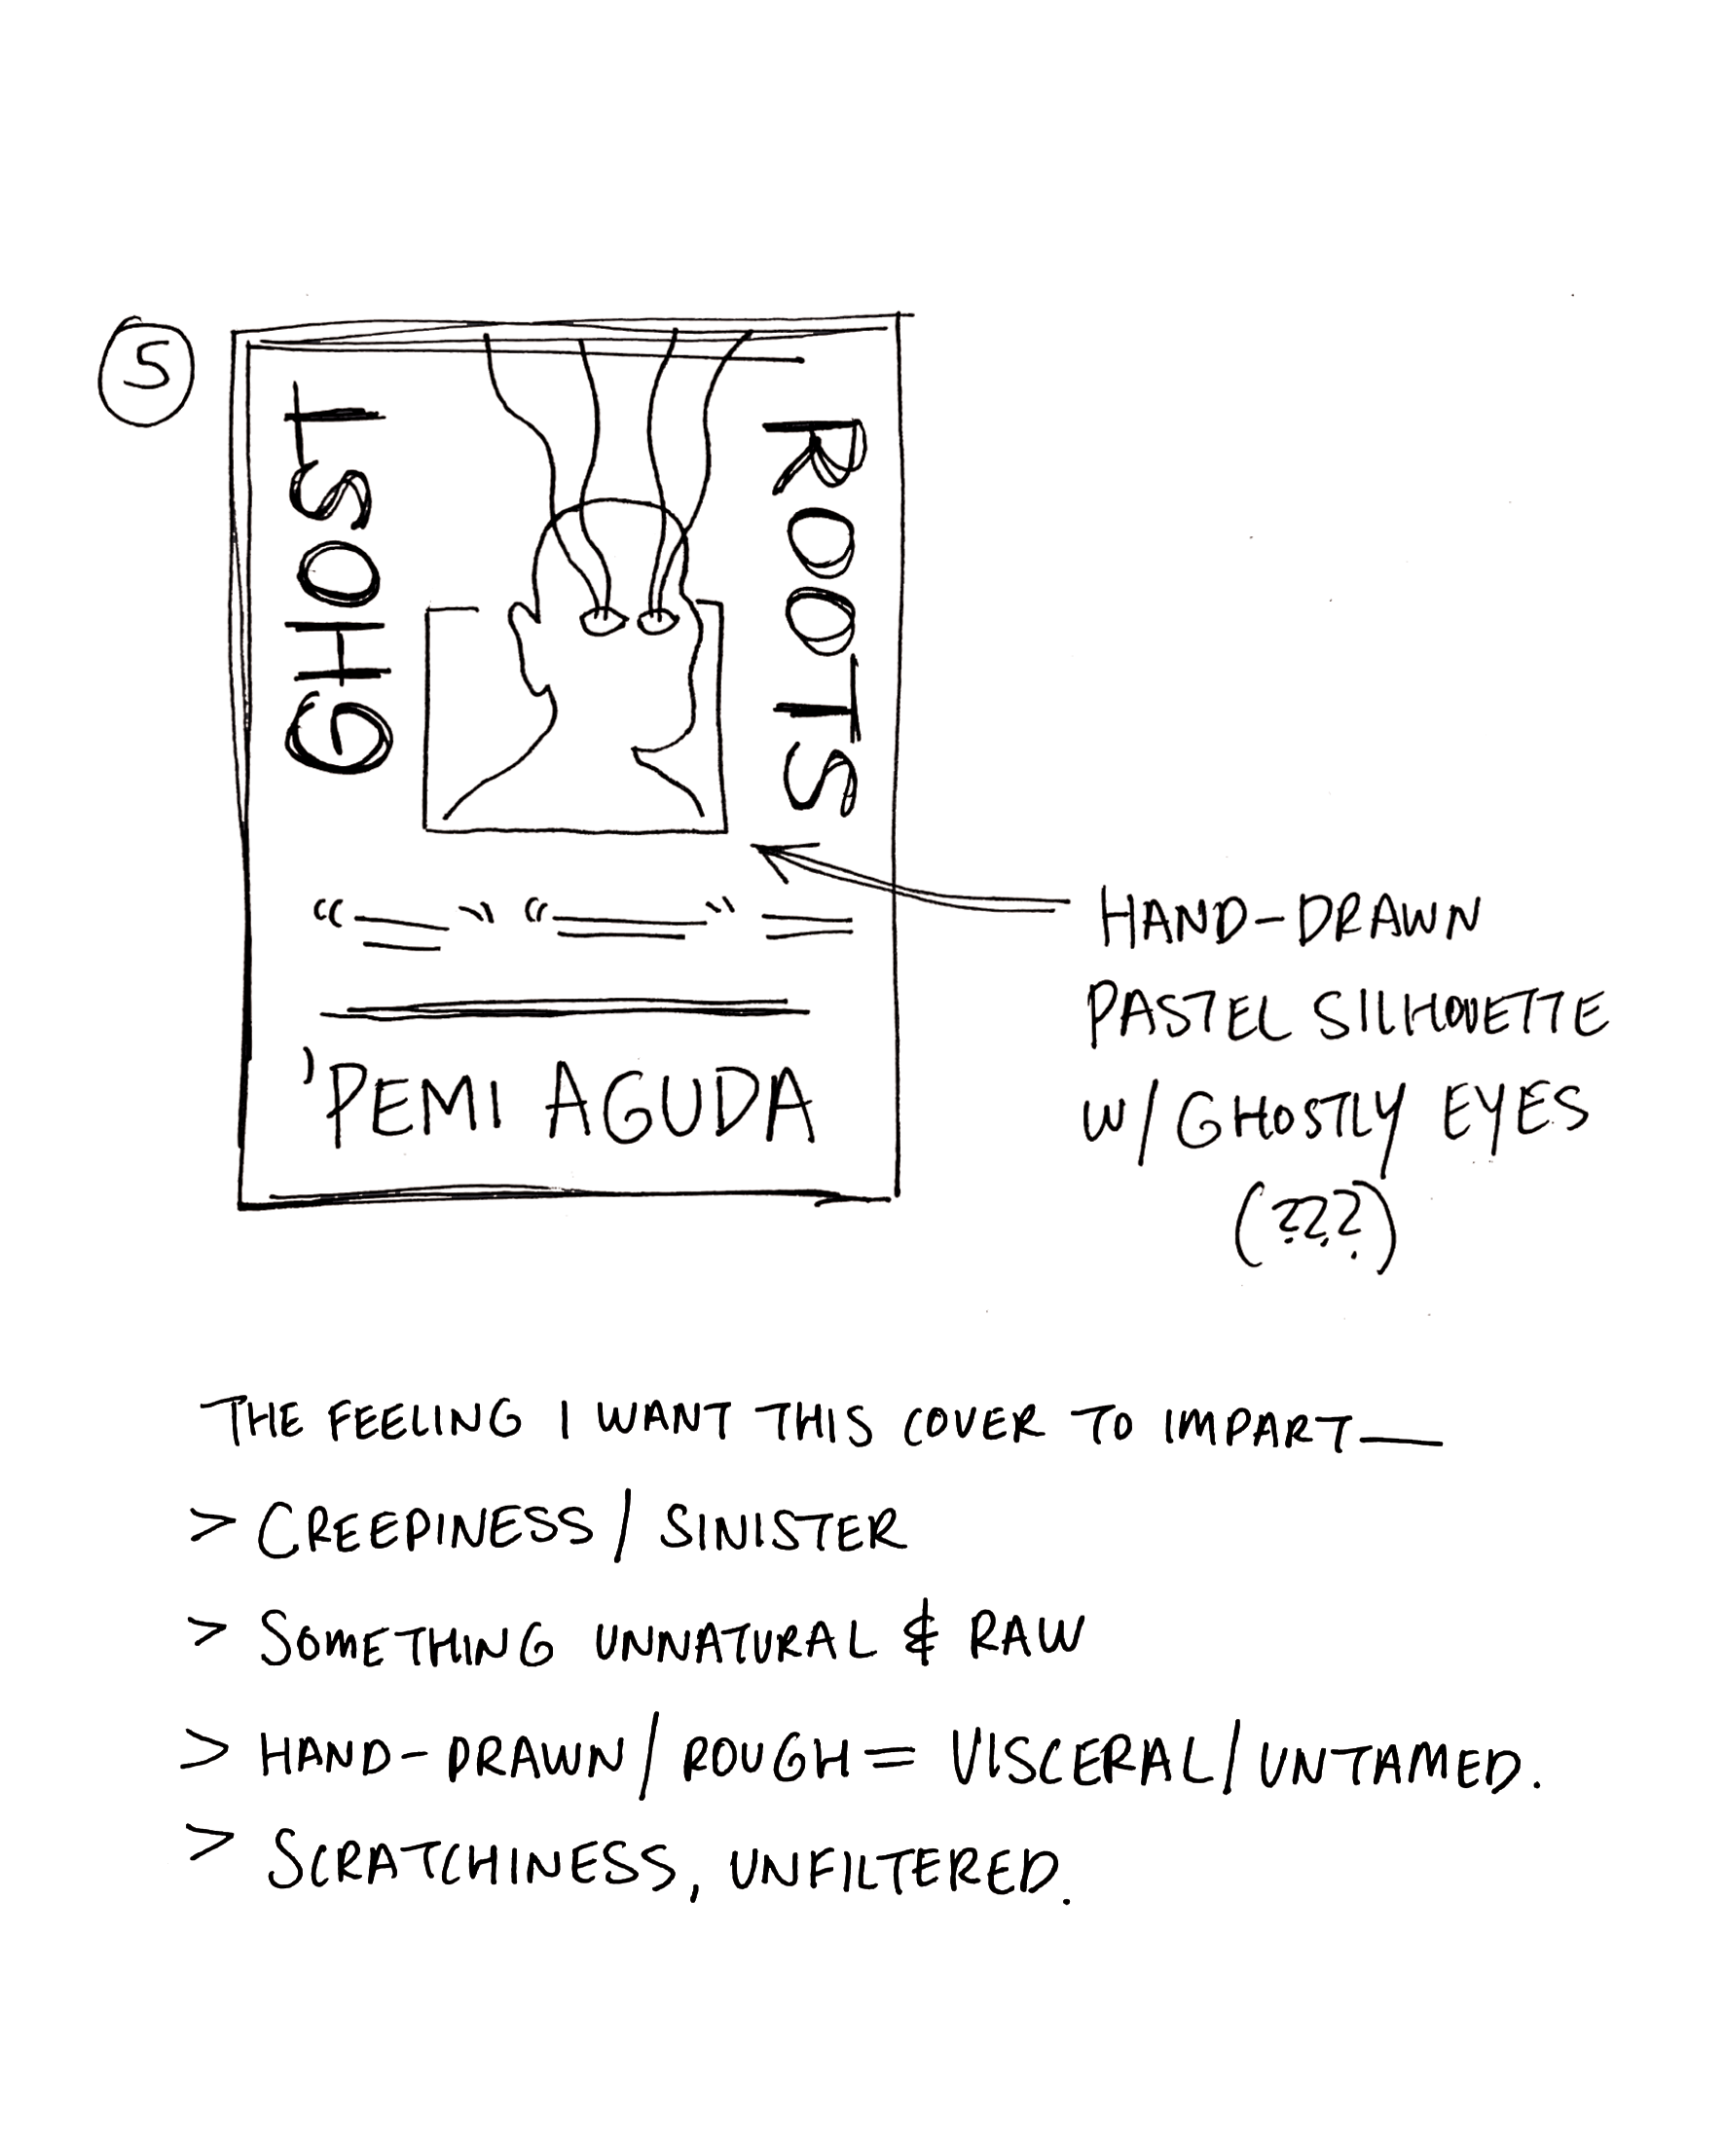 5
GHOST
ROOTS
“ ” “ ”
'PEMI AGUDA
HAND-DRAWN
PASTEL SILHOUETTE
W/ GHOSTLY EYES
(???)
THE FEELING I WANT THIS COVER TO IMPART—
> CREEPINESS / SINISTER
> SOMETHING UNNATURAL & RAW
> HAND-DRAWN / ROUGH = VISCERAL / UNTAMED.
> SCRATCHINESS, UNFILTERED.